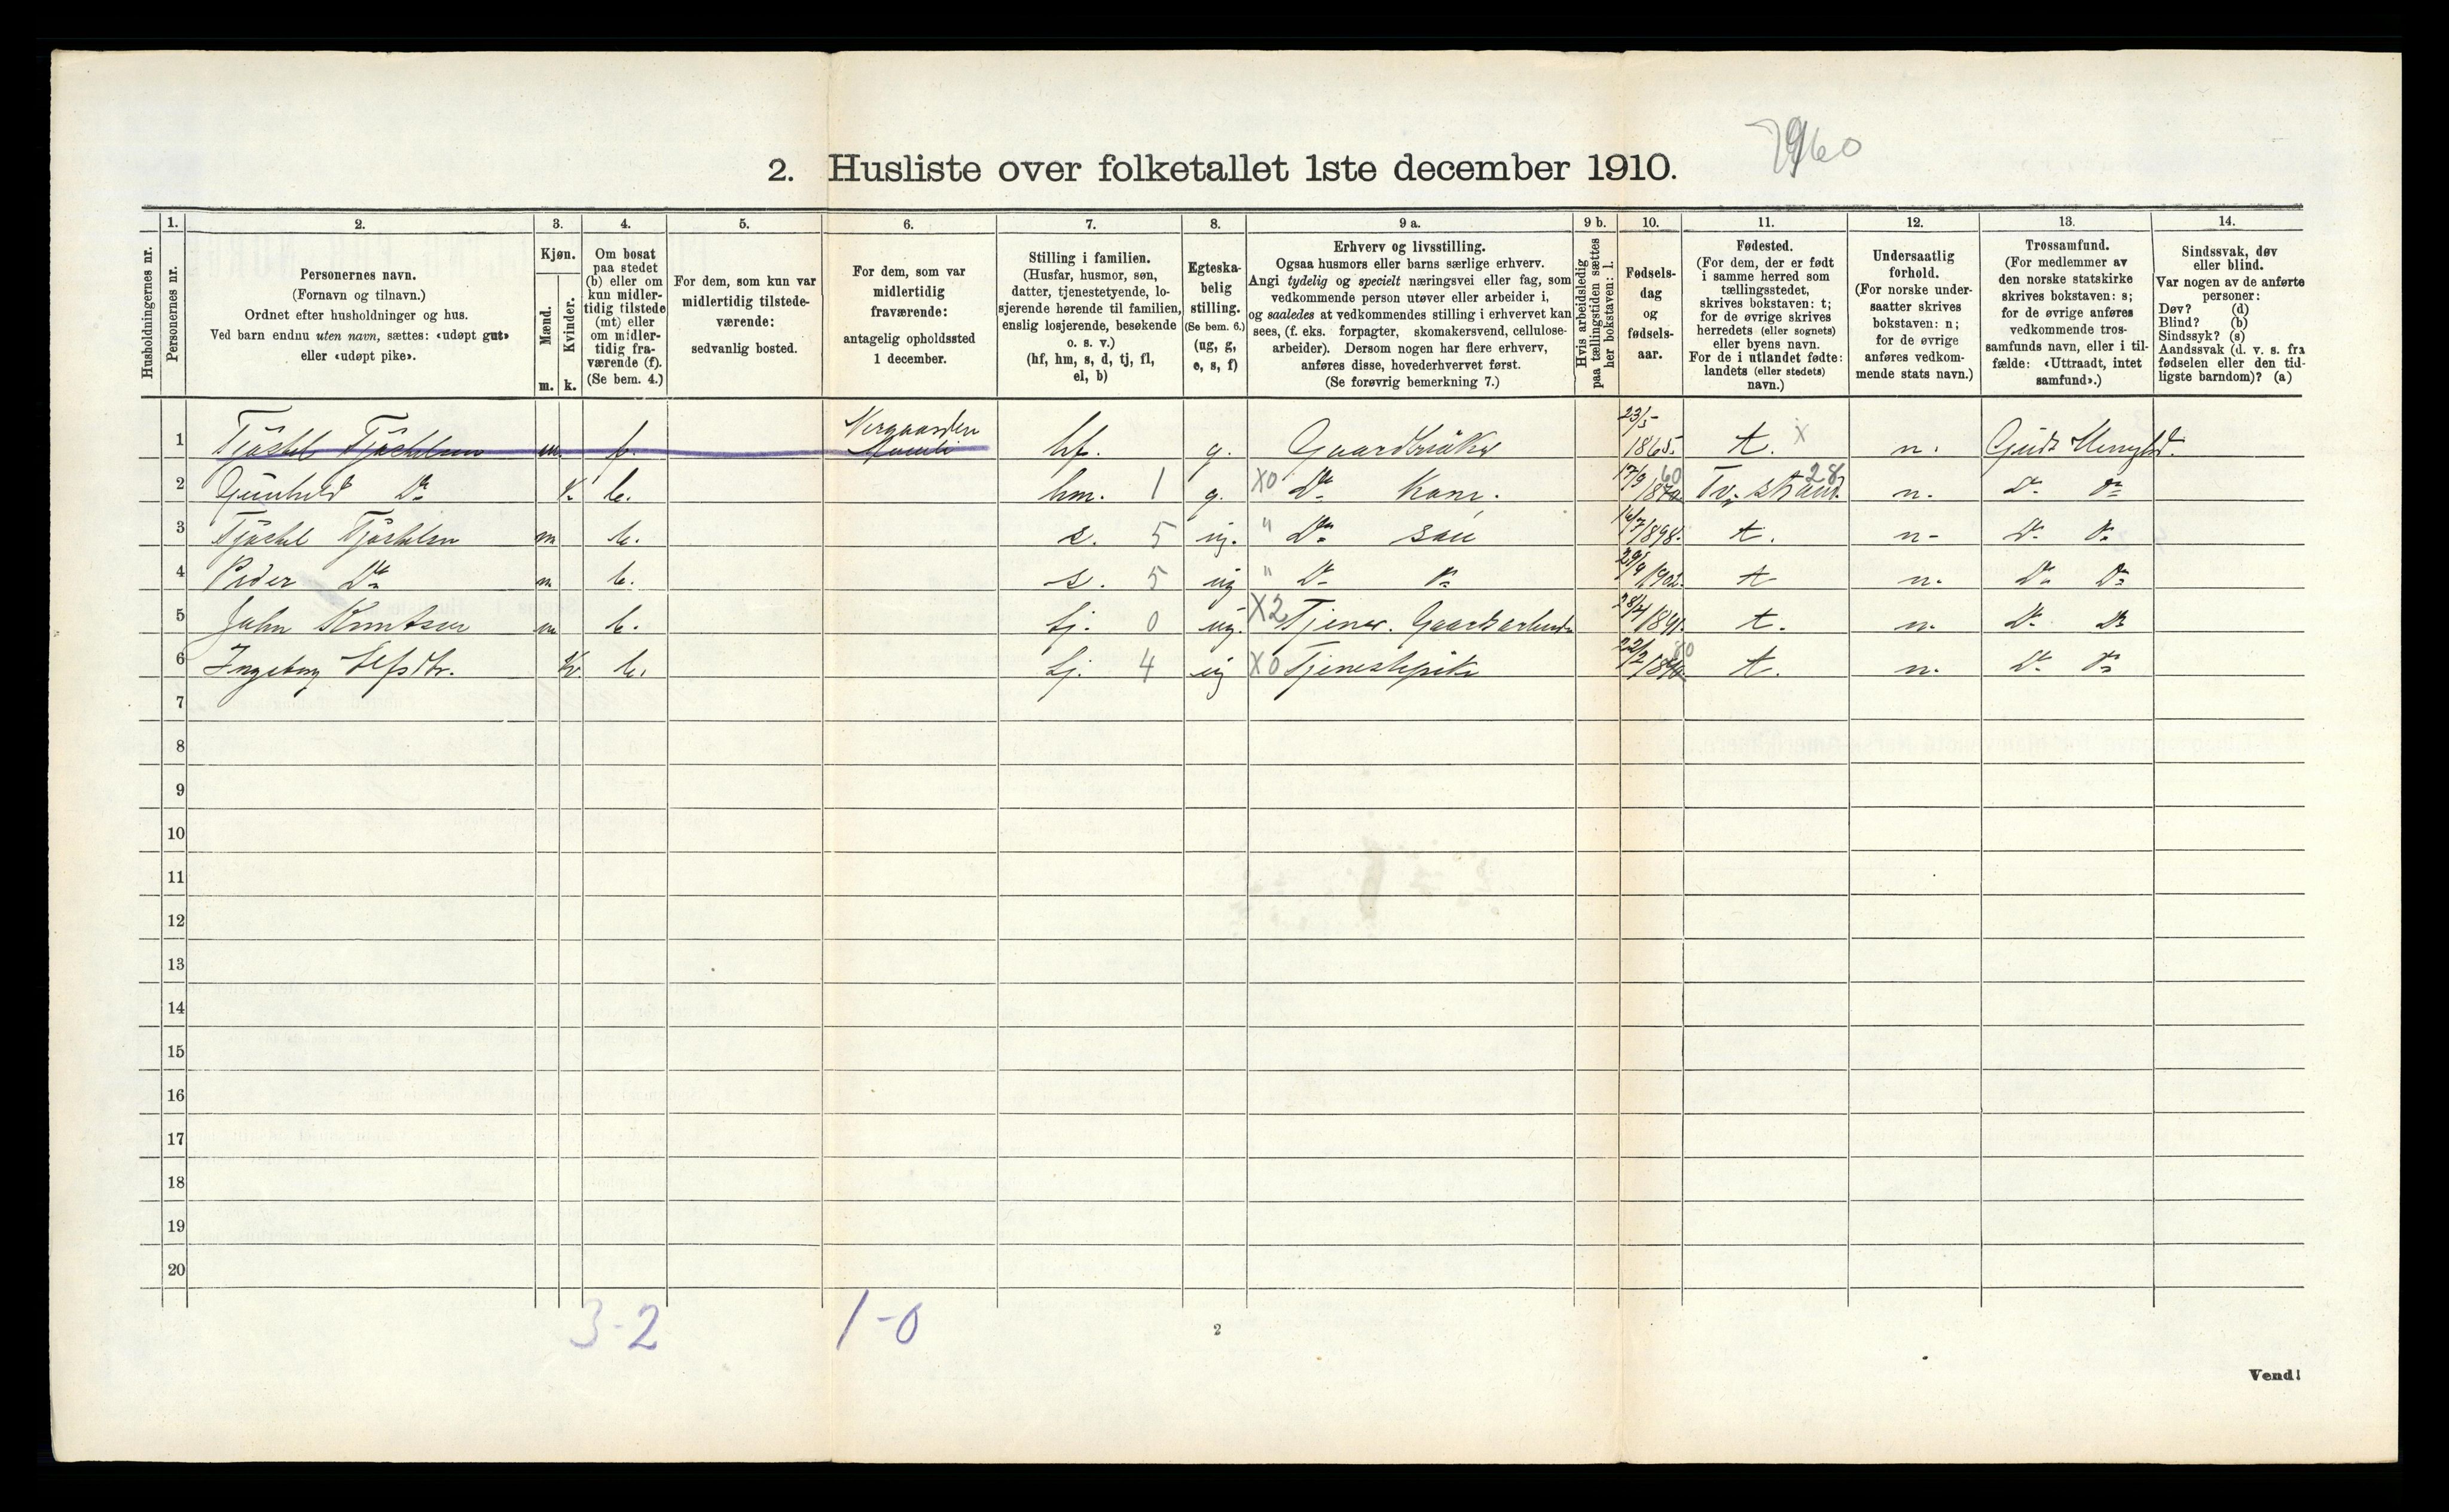 7960
2. Husliste over folketallet 1ste december 1910.
1. 2. 3. 4. 5. 6. 7. 8. 9 a. 9 b. 10. 11. 12. 13. 14.
Husholdningernes nr.
Personernes nr.
Personernes navn.
(Fornavn og tilnavn.)
Ordnet efter husholdninger og hus.
Ved barn endnu uten navn, sættes: «udøpt gut»
eller «udøpt pike».
Kjøn.
Mænd.
Kvinder.
m. k.
Om bosat
paa stedet
(b) eller om
kun midler-
tidig tilstede
(mt) eller
om midler-
tidig fra-
værende (f).
(Se bem. 4.)
For dem, som kun var
midlertidig tilstede-
værende:
sedvanlig bosted.
For dem, som var
midlertidig
fraværende:
antagelig opholdssted
1 december.
Stilling i familien.
(Husfar, husmor, søn,
datter, tjenestetyende, lo-
sjerende hørende til familien,
enslig losjerende, besøkende
o. s. v.)
(hf, hm, s, d, tj, fl,
el, b)
Egteska-
belig
stilling.
(Se bem. 6.)
(ug, g,
e, s, f)
Erhverv og livsstilling.
Ogsaa husmors eller barns særlige erhverv.
Angi tydelig og specielt næringsvei eller fag, som
vedkommende person utøver eller arbeider i,
og saaledes at vedkommendes stilling i erhvervet kan
sees, (f. eks. forpagter, skomakersvend, cellulose-
arbeider). Dersom nogen har flere erhverv,
anføres disse, hovederhvervet først.
(Se forøvrig bemerkning 7.)
Hvis arbeidsledig
paa tællingstiden sættes
her bokstaven: l.
Fødsels-
dag
og
fødsels-
aar.
Fødested.
(For dem, der er født
i samme herred som
tællingsstedet,
skrives bokstaven: t;
for de øvrige skrives
herredets (eller sognets)
eller byens navn.
For de i utlandet fødte:
landets (eller stedets)
navn.)
Undersaatlig
forhold.
(For norske under-
saatter skrives
bokstaven: n;
for de øvrige
anføres vedkom-
mende stats navn.)
Trossamfund.
(For medlemmer av
den norske statskirke
skrives bokstaven: s;
for de øvrige anføres
vedkommende tros-
samfunds navn, eller i til-
fælde: «Uttraadt, intet
samfund».)
Sindssvak, døv
eller blind.
Var nogen av de anførte
personer:
Døv? (d)
Blind? (b)
Sindssyk? (s)
Aandssvak (d. v. s. fra
fødselen eller den tid-
ligste barndom)? (a)
1 m. f. hf. g. Gaardbruker 23/5 1865. t. x n.
2 Gunhild Do k. b. hm. 1 g. X0 Do Kone. 17/9 1870 60 Tv.strand. 28 n. Do Do
3 m b. s. 5 ug. " Do søn 16/7 1898. t. n- Do Do
4 Peder Do m b. s. 5 ug " Do Do 1902. t n. Do Do
5 John Knutsen m b. tj. 0 ug. X2 Tjener. 28/4 1891. t. n. Do Do
6 Ingeborg k. b. tj. 4 ug X0 Tjenestepike 22/2 t. n. Do Do
7
8
9
10
11
12
13
14
15
16
17
18
19
20
3-2 1-0
2
Vend!